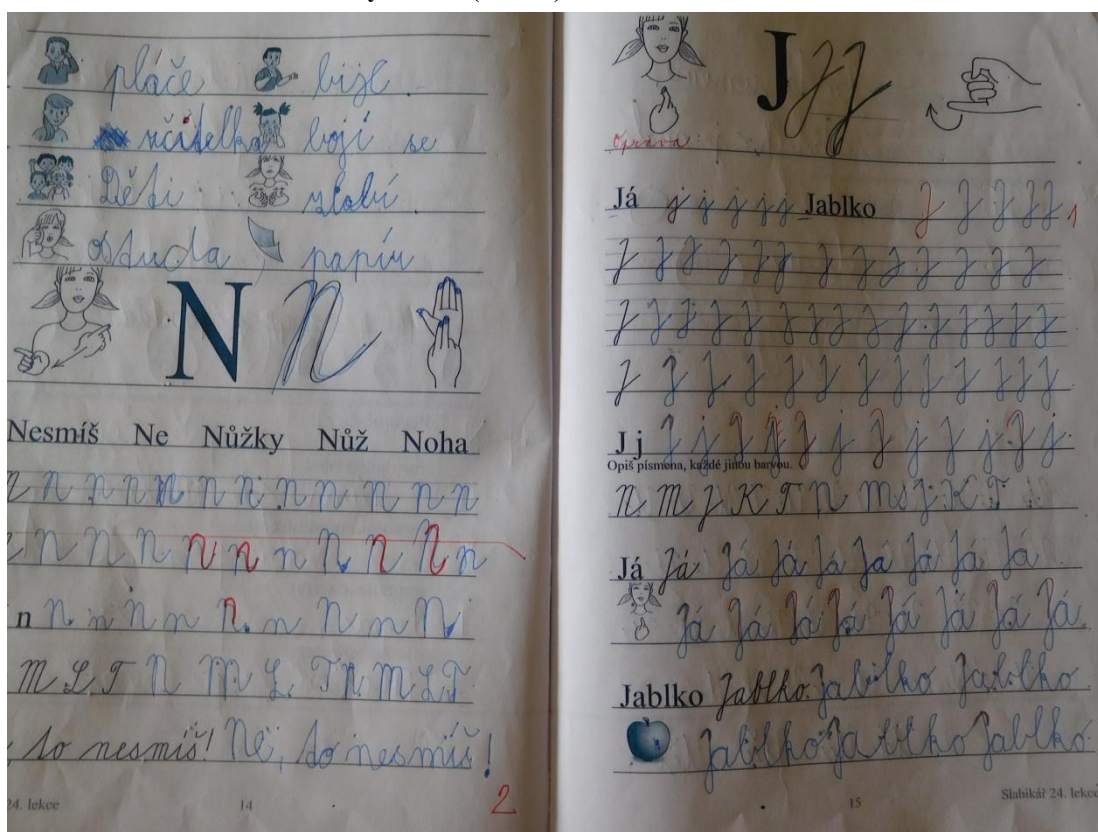 pláče bije.
učitelka bojí se
Děti zlobí
Ostuda papír
N N
Nesmíš Ne Nůžky Nůž Noha
N n n n N n n n n n n n
n n n n N n n N n N n
n N n N n N n N n N
M L T N M L T N M L T
, to nesmíš! Ne, to nesmíš!
24. lekce 14 2
J J J
Oprava:
Já j j j j j Jablko J J J J J 1
J J J J J J J J J J J J J
J J J J J J J J J J J J J J
J J J J J J J J J J J J J
J j J j J j J j J j J j J j
Opiš písmena, každé jinou barvou.
N M J K T N M J K T
Já Já Já Já Já Já Já Já Já
Já Já Já Já Já Já Já Já
Jablko Jablko Jablko Jablko
Jablko Jablko Jablko
15 Slabikář 24. lekce